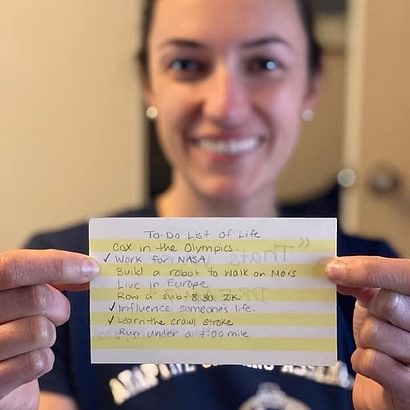 To-Do List of Life
Cox in the Olympics
✓ Work for NASA
Build a robot to walk on Mars
Live in Europe
Row a sub 8:30 2K
✓ Influence someone's life.
✓ Learn the crawl stroke
Run under a 7:00 mile